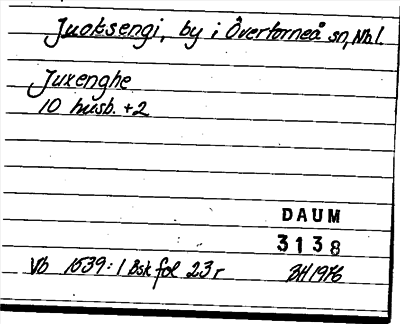 Juoksengi, by i Övertorneå sn, Nb.l.
Juxenghe
10 husb. + 2
DAUM
3138
Vb 1539:1 Bsk fol 23r BH 1976